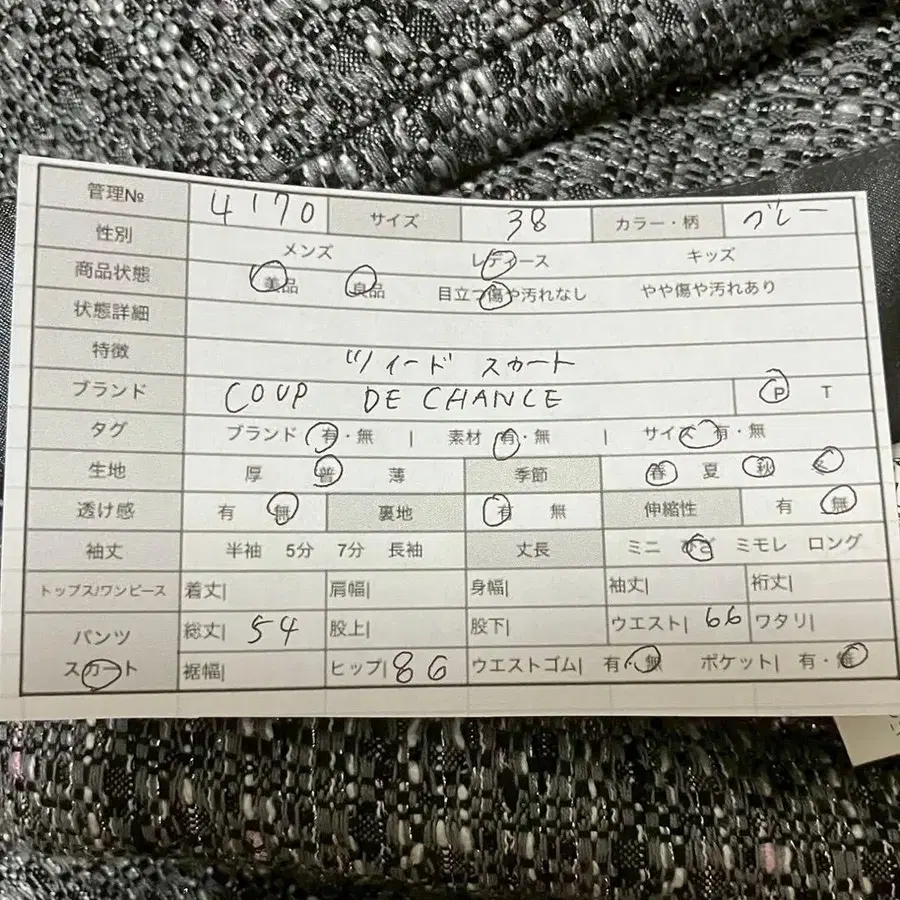 管理№ 4170 サイズ 38 カラー・柄 グレー
性別 メンズ レディース キッズ
商品状態 美品 良品 目立つ傷や汚れなし やや傷や汚れあり
状態詳細
特徴 ツイード スカート
ブランド COUP DE CHANCE P T
タグ ブランド 有・無 | 素材 有・無 | サイズ 有・無
生地 厚 普 薄 季節 春 夏 秋 冬
透け感 有 無 裏地 有 無 伸縮性 有 無
袖丈 半袖 5分 7分 長袖 丈長 ミニ ひざ ミモレ ロング
トップス/ワンピース 着丈| 肩幅| 身幅| 袖丈| 裄丈|
パンツ 総丈| 54 股上| 股下| ウエスト| 66 ワタリ|
スカート 裾幅| ヒップ| 86 ウエストゴム| 有・無 ポケット| 有・無